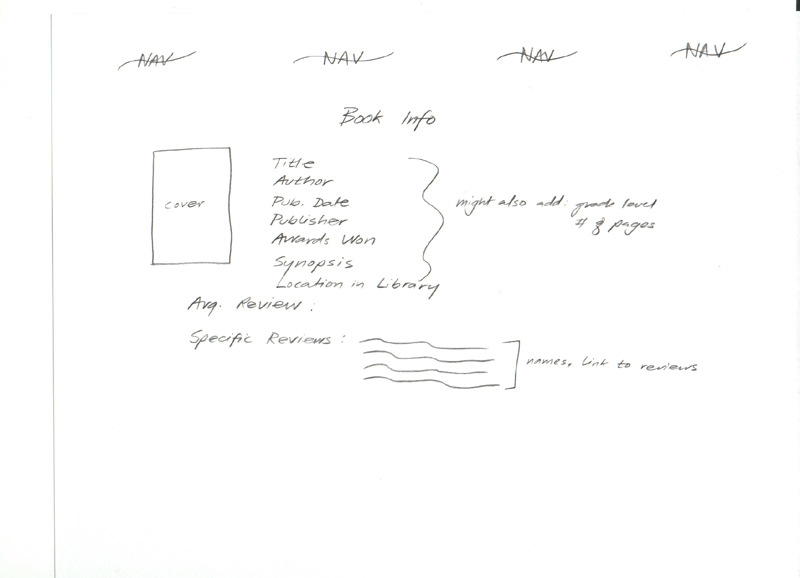 NAV NAV NAV NAV
Book Info
cover
Title
Author
Pub. Date
Publisher
Awards Won
Synopsis
Location in Library
might also add: grade level
# of pages
Avg. Review :
Specific Reviews :
names, link to reviews